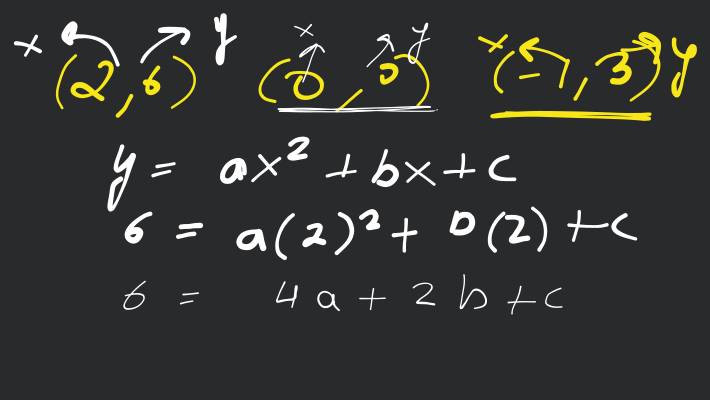 x (2, 6) y x (0, 0) y x (-1, 3) y
y = ax² + bx + c
6 = a(2)² + b(2) + c
6 = 4a + 2b + c